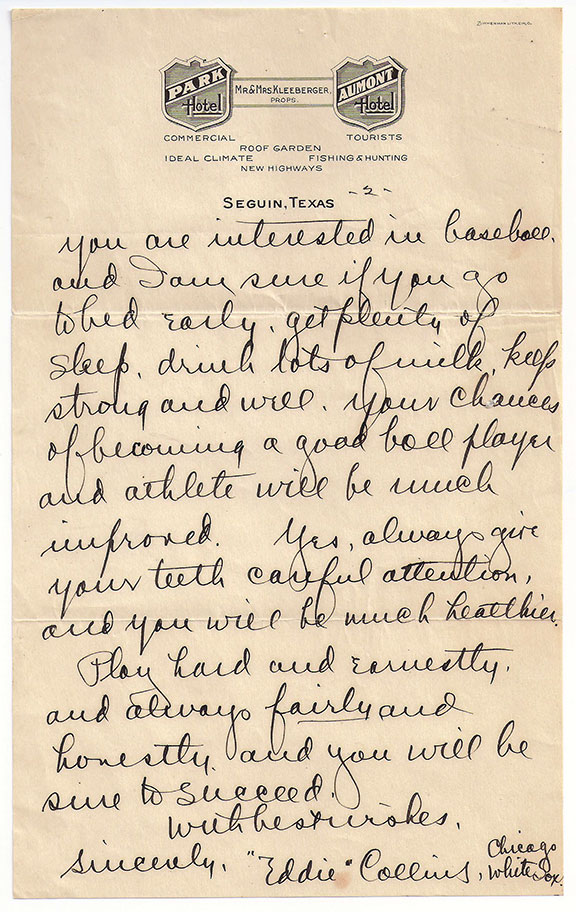 ZIMMERMAN LITH. CIN. O.
PARK Hotel
MR & MRS. KLEEBERGER, PROPS.
AUMONT Hotel
COMMERCIAL TOURISTS
ROOF GARDEN
IDEAL CLIMATE FISHING & HUNTING
NEW HIGHWAYS
SEGUIN, TEXAS -2-
you are interested in baseball.
and I am sure if you go
to bed early, get plenty of
sleep, drink lots of milk, keep
strong and well, your chances
of becoming a good ball player
and athlete will be much
improved. Yes, always give
your teeth careful attention,
and you will be much healthier.
Play hard and earnestly,
and always fairly and
honestly, and you will be
sure to succeed.
With best wishes,
Sincerely, "Eddie" Collins, Chicago
White Sox.